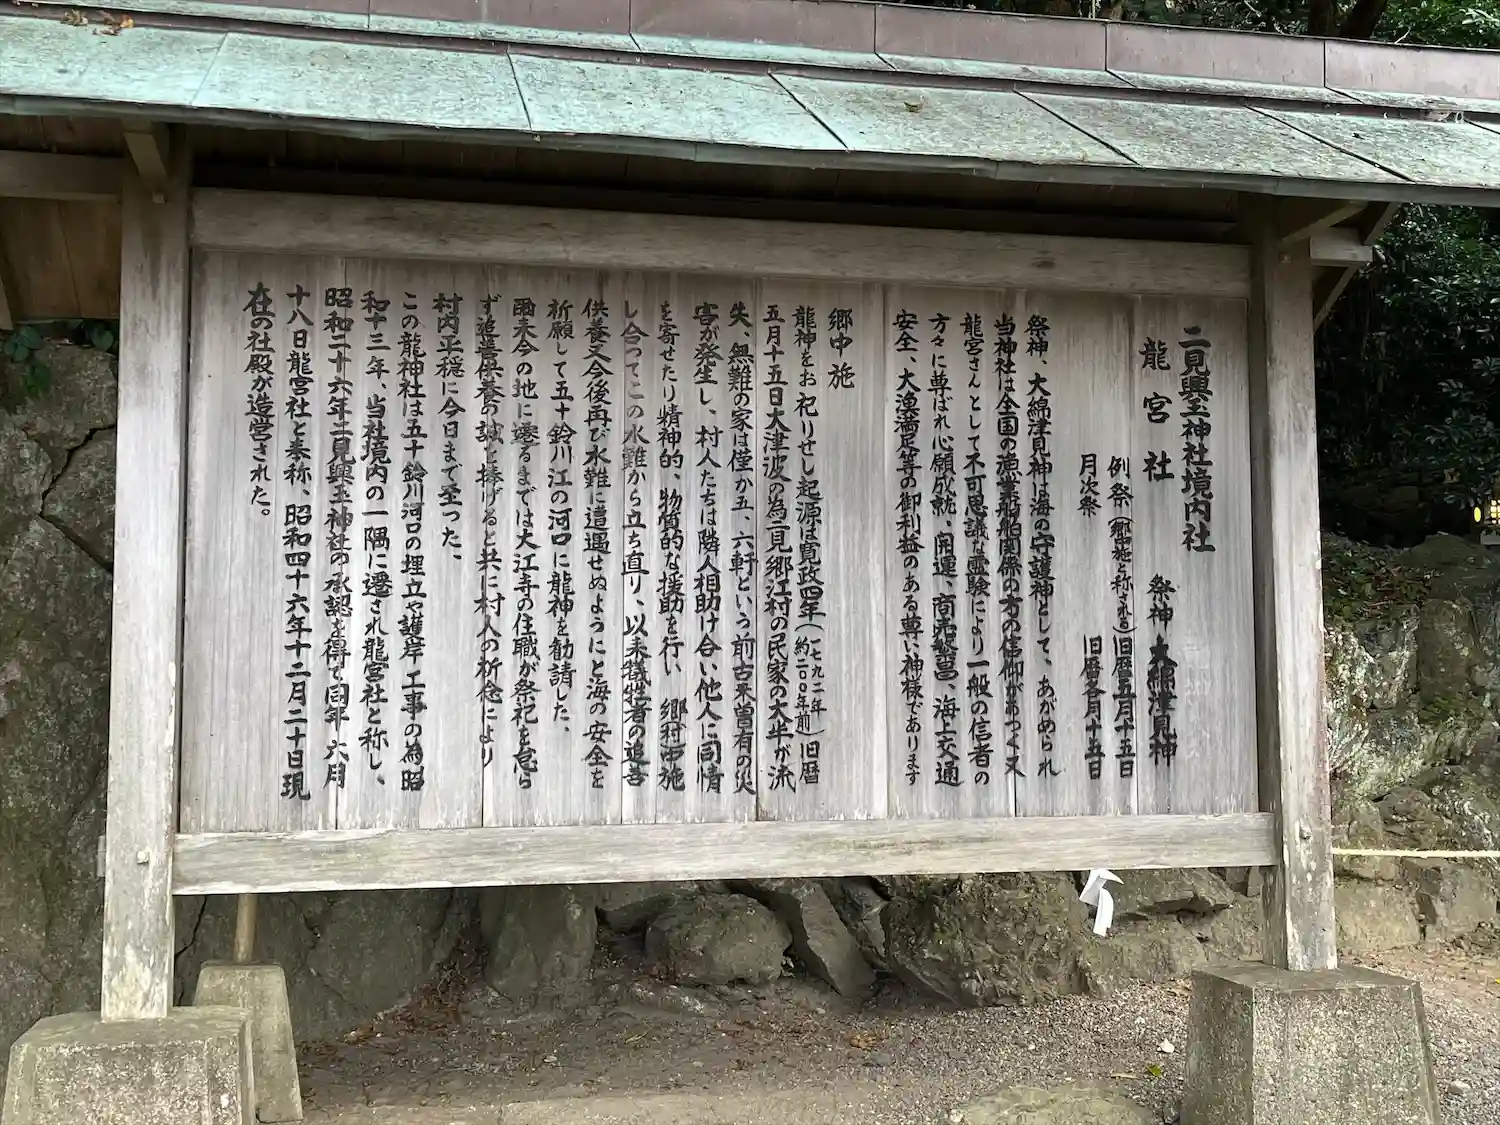 二見興玉神社境内社
龍宮社　祭神 大綿津見神
例祭（郷中施と称される）旧暦五月十五日
月次祭　旧暦各月十五日
祭神、大綿津見神は海の守護神として、あがめられ
当神社は全国の漁業船舶関係の方の信仰があつく又
龍宮さんとして不可思議な霊験により一般の信者の
方々に尊ばれ心願成就、開運、商売繁昌、海上交通
安全、大漁満足等の御利益のある尊い神様であります
郷中施
龍神をお祀りせし起源は寛政四年（一七九二年 約二〇〇年前）旧暦
五月十五日大津波の為二見郷江村の民家の大半が流
失、無難の家は僅か五、六軒という前古未曽有の災
害が発生し、村人たちは隣人相助け合い他人に同情
を寄せたり精神的、物質的な援助を行い 郷村中施
し合ってこの水難から立ち直り、以来犠牲者の追善
供養又今後再び水難に遭遇せぬようにと海の安全を
祈願して五十鈴川江の河口に龍神を勧請した、
爾来今の地に遷るまでは大江寺の住職が祭祀を怠ら
ず追善供養の誠を捧げると共に村人の祈念により
村内平穏に今日まで至った、
この龍神社は五十鈴川河口の埋立や護岸工事の為昭
和十三年、当社境内の一隅に遷され龍宮社と称し、
昭和二十六年二見興玉神社の承認を得て同年六月
十八日龍宮社と奉称、昭和四十六年十二月二十日現
在の社殿が造営された。